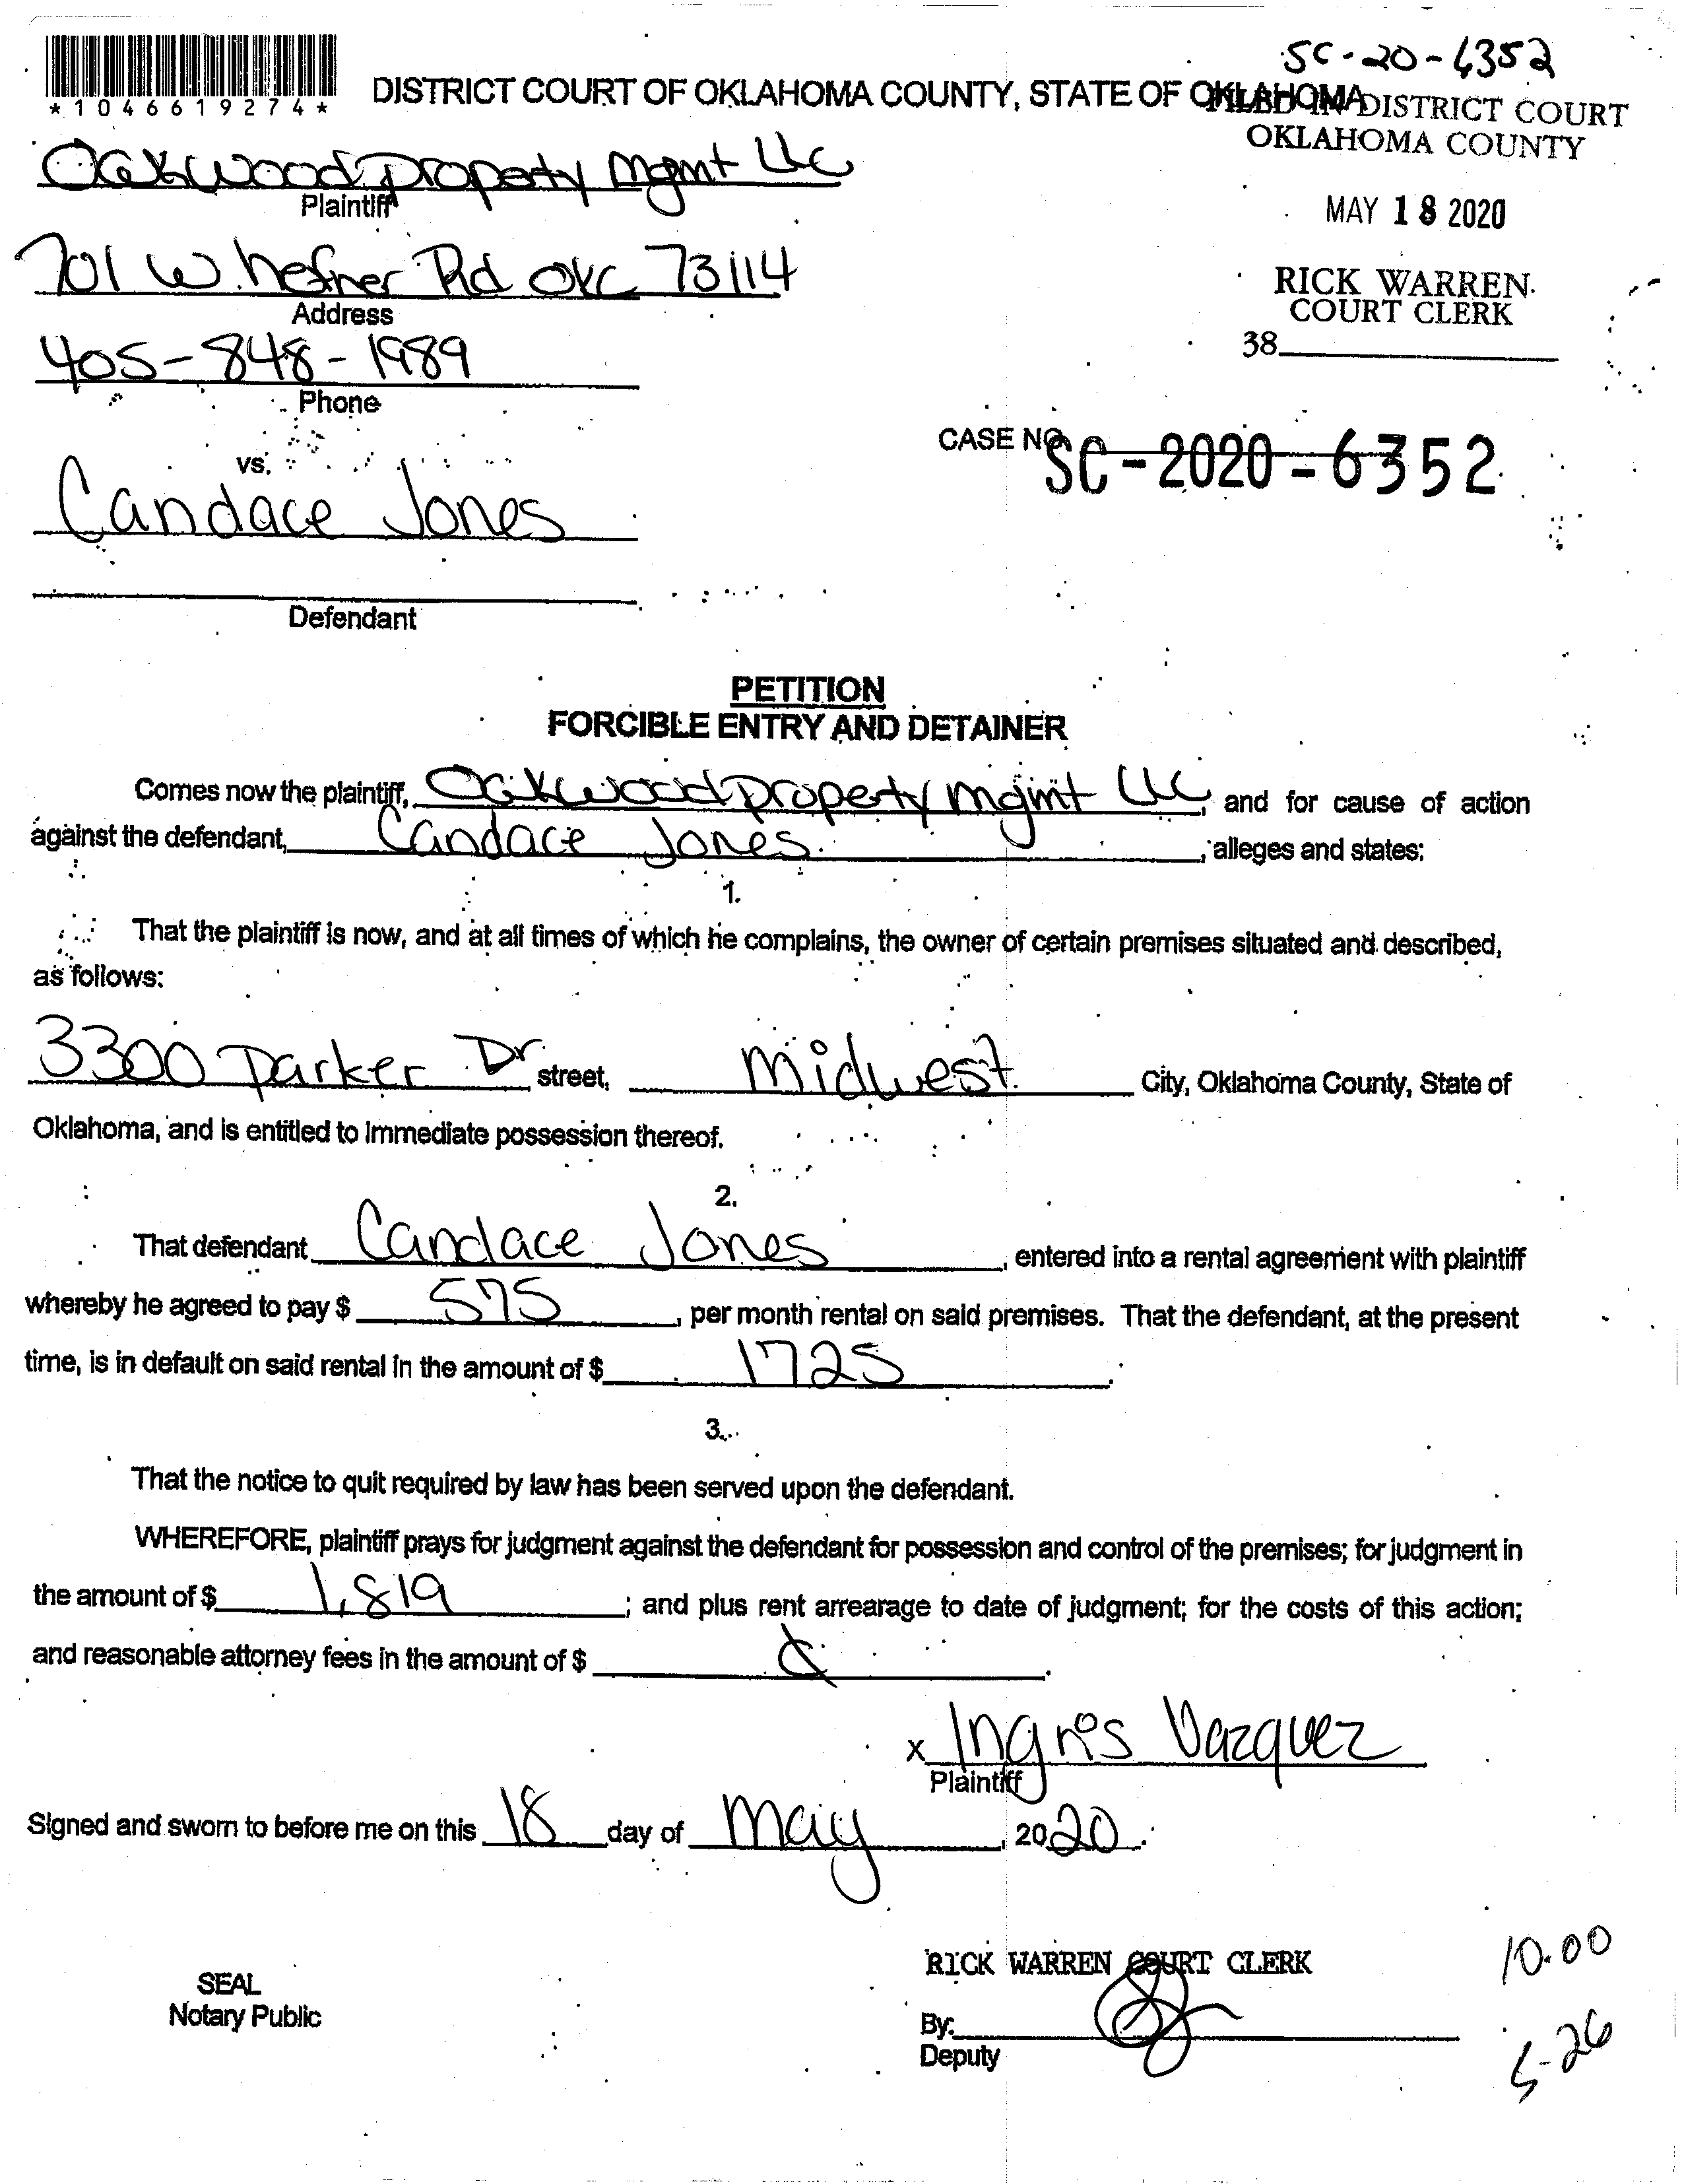 SC-20-6352
*1046619274*
DISTRICT COURT OF OKLAHOMA COUNTY, STATE OF OKLAHOMA
FILED IN DISTRICT COURT
OKLAHOMA COUNTY
Oakwood property mgmt LLC
Plaintiff
MAY 18 2020
701 W. hefner Rd OKC 73114
Address
RICK WARREN
COURT CLERK
38
405-848-1989
Phone
CASE NO. SC-2020-6352
vs.
Candace Jones
Defendant
PETITION
FORCIBLE ENTRY AND DETAINER
Comes now the plaintiff, Oakwood property mgmt LLC, and for cause of action
against the defendant, Candace Jones, alleges and states:
1.
That the plaintiff is now, and at all times of which he complains, the owner of certain premises situated and described,
as follows:
3300 parker Dr street, Midwest City, Oklahoma County, State of
Oklahoma, and is entitled to immediate possession thereof.
2.
That defendant Candace Jones, entered into a rental agreement with plaintiff
whereby he agreed to pay $ 575, per month rental on said premises. That the defendant, at the present
time, is in default on said rental in the amount of $ 1725.
3.
That the notice to quit required by law has been served upon the defendant.
WHEREFORE, plaintiff prays for judgment against the defendant for possession and control of the premises; for judgment in
the amount of $ 1,819; and plus rent arrearage to date of judgment; for the costs of this action;
and reasonable attorney fees in the amount of $
x Ingris Vazquez
Plaintiff
Signed and sworn to before me on this 18 day of May, 2020.
RICK WARREN COURT CLERK
10.00
SEAL
Notary Public
By:
Deputy
5-26